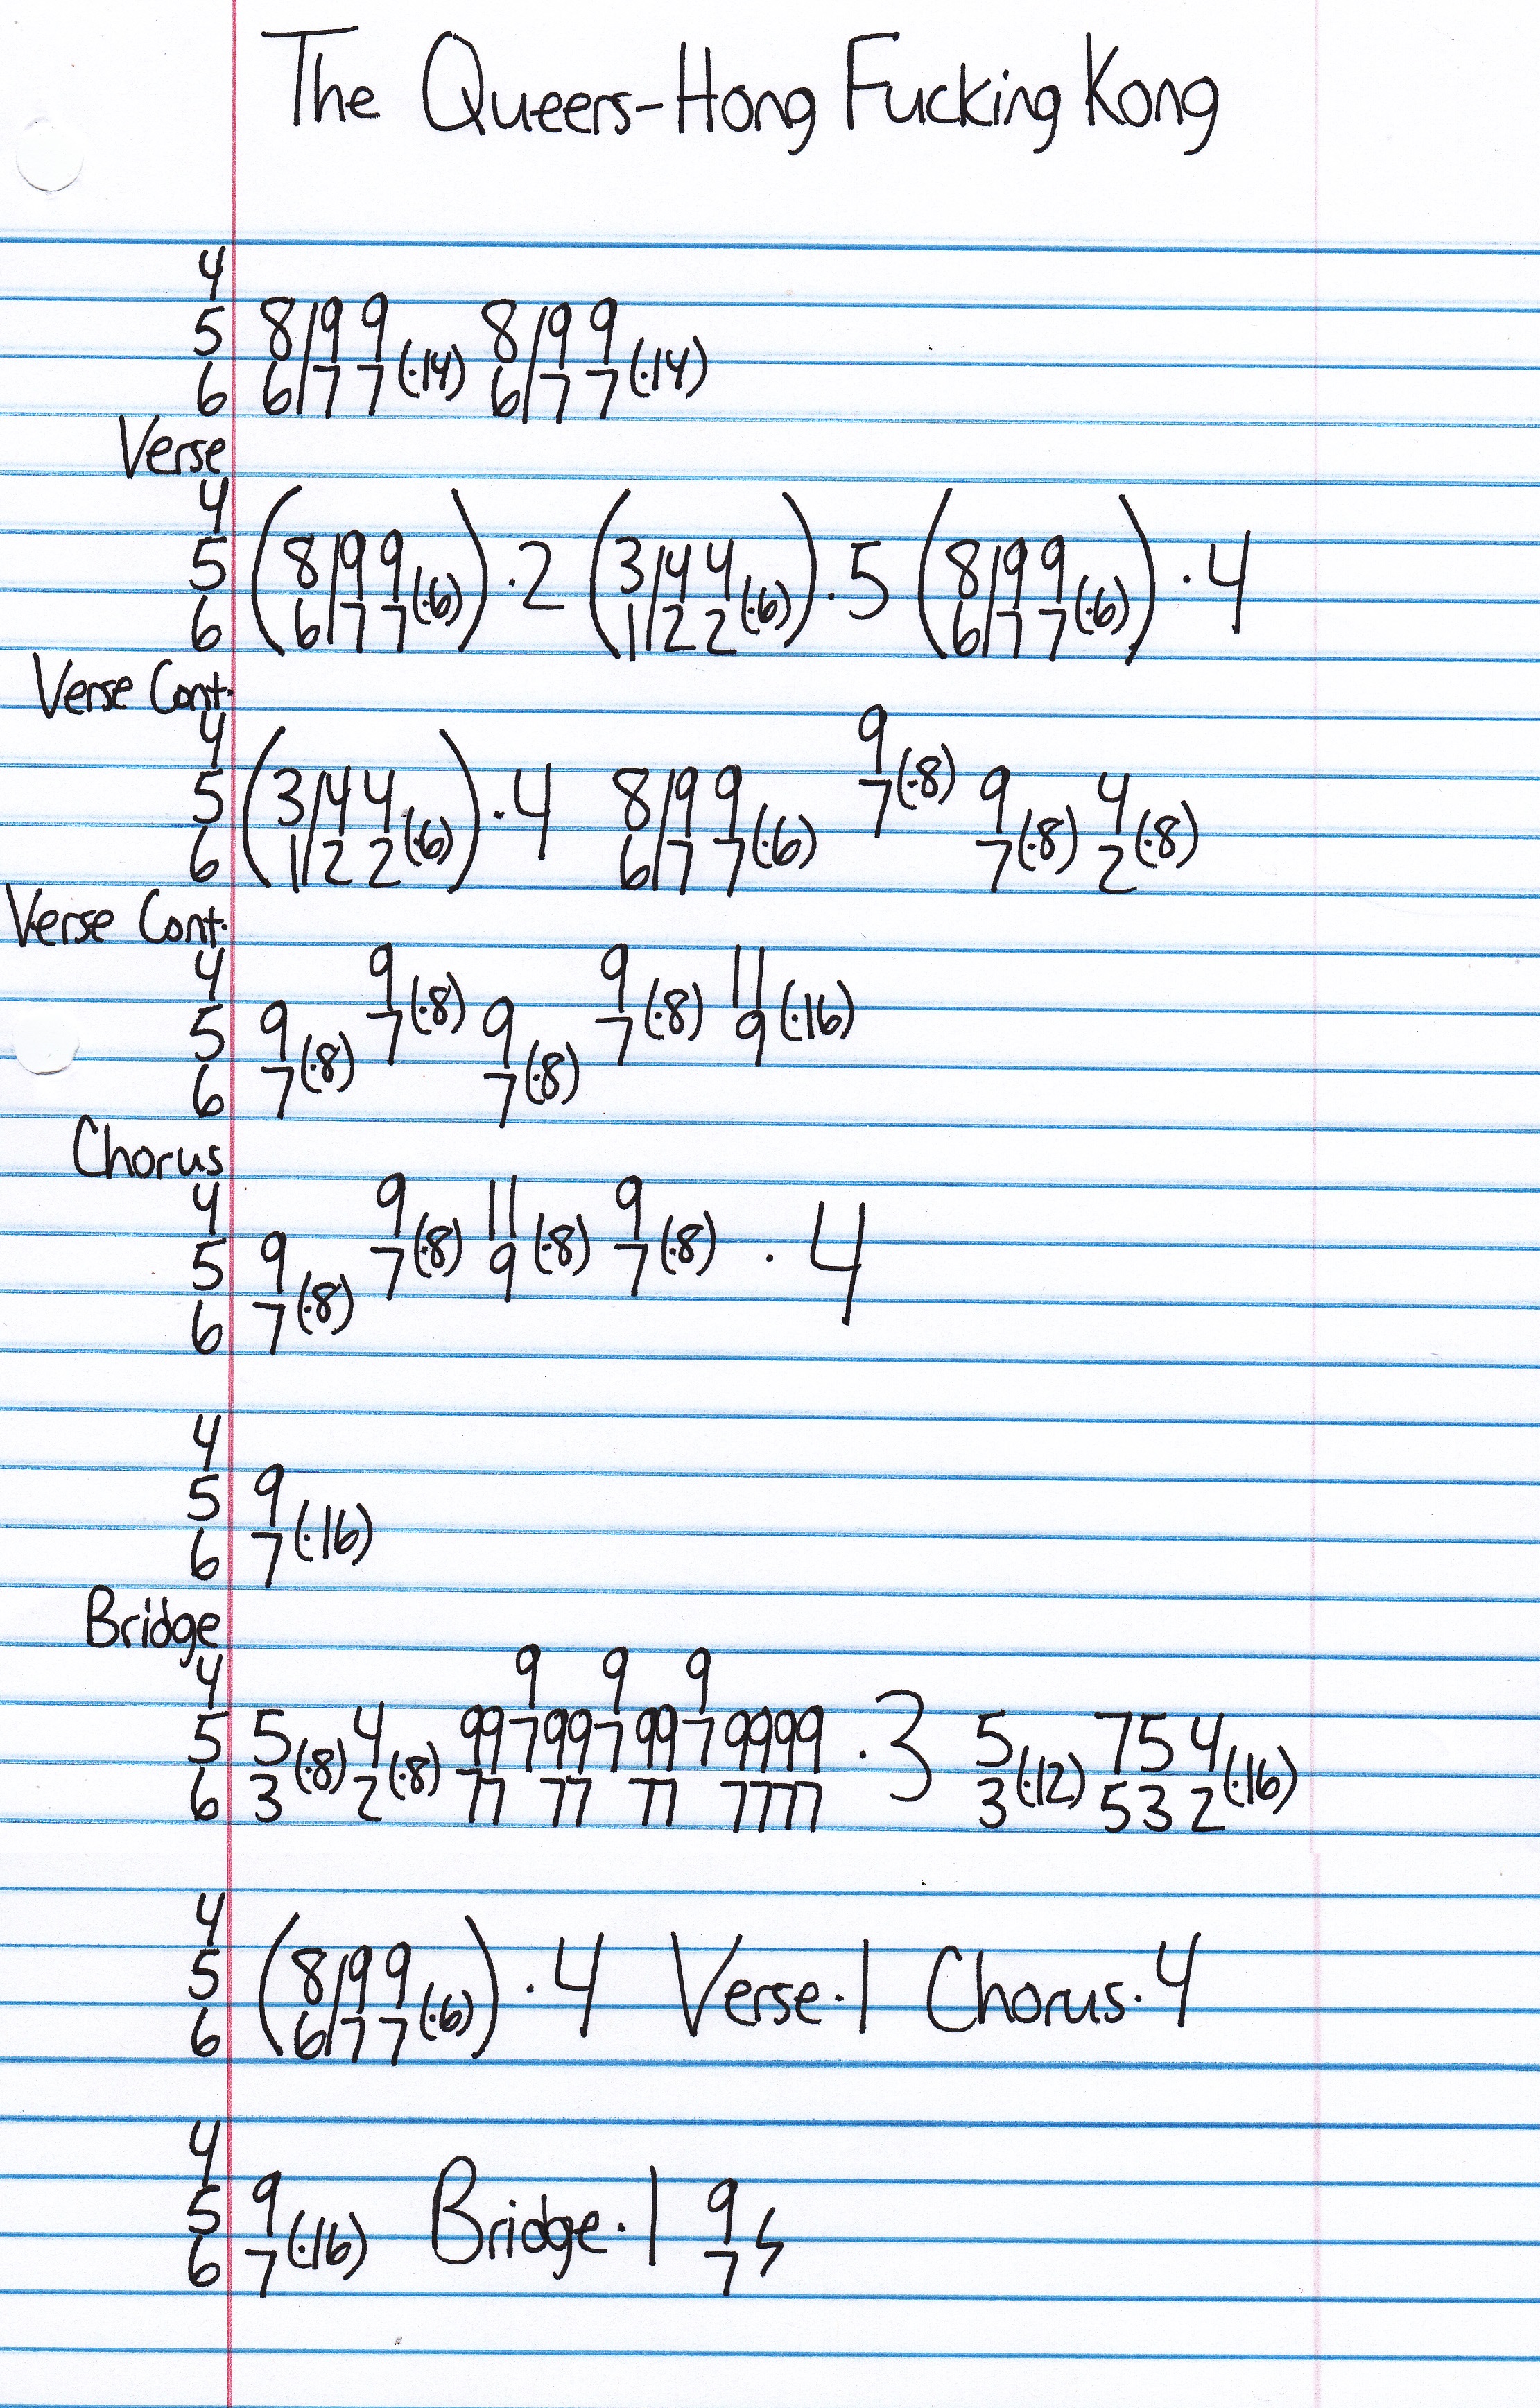 The Queers-Hong Fucking Kong
4
5 8/9 9 8/9 9
6 6/7 7 (·14) 6/7 7 (·14)
Verse
4
5 (8/9 9 ) ·2 (3/4 4 ) ·5 (8/9 9 ) ·4
6 6/7 7 (·6) 1/2 2 (·6) 6/7 7 (·6)
Verse Cont.
4 9
5 (3/4 4 ) ·4 8/9 9 7 (·8) 9 4
6 1/2 2 (·6) 6/7 7 (·6) 7 (·8) 2 (·8)
Verse Cont.
4 9 9 11
5 9 7 (·8) 9 7 (·8) 9 (·16)
6 7 (·8) 7 (·8)
Chorus
4 9 11 9
5 9 7 (·8) 9 (·8) 7 (·8) · 4
6 7 (·8)
4
5 9
6 7 (·16)
Bridge
4 9 9 9
5 5 4 99 7 99 7 99 7 9999 ·3 5 7 5 4
6 3 (·8) 2 (·8) 77 77 77 7777 3 (·12) 5 3 2 (·16)
4
5 (8/9 9 ) ·4 Verse·1 Chorus·4
6 6/7 7 (·6)
4
5 9 Bridge·1 9
6 7 (·16) 7